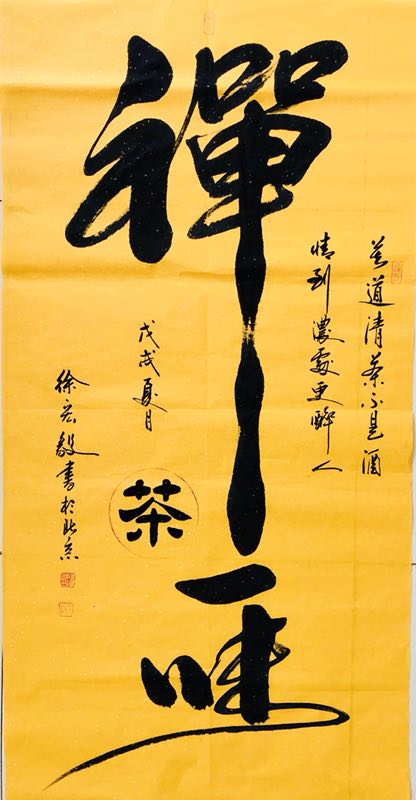 禪
茶
一味
莫道清茶不是酒
情到濃處更醉人
戊戌夏月
徐宏毅書於北京